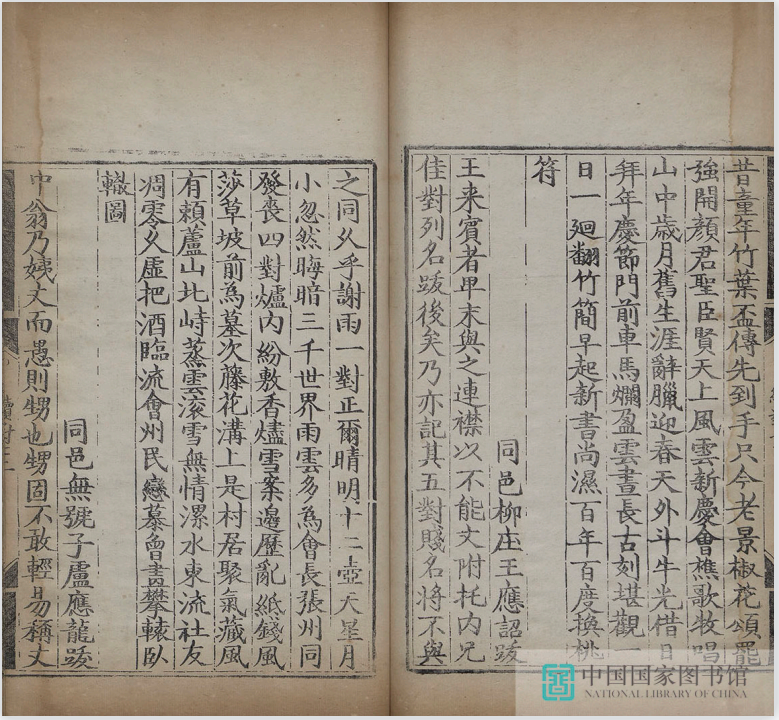 昔童年竹葉盃傳先到手只今老景椒花頌罷
強開顏君聖臣賢天上風雲新慶會樵歌牧唱
山中歲月舊生涯辭臘迎春天外斗牛光借日
拜年慶節門前車馬爛盈雲晝長古刻堪觀一
日一廻翻竹簡早起新書尚濕百年百度換桃
符
同邑柳庄王應詔跋
王來賓者甲末與之連襟以不能文附托内兄
佳對列名跋後矣乃亦記其五對賤名將不與
之同久乎謝雨一對正爾晴明十二壺天星月
小忽然晦暗三千世界雨雲多為會長張州同
發喪四對爐内紛敷香燼雪案邉歷亂紙錢風
莎草坡前為墓次藤花溝上是村居聚氣藏風
有頼蘆山北峙蒸雲滚雪無情漯水東流社友
凋零久虛把酒臨流會州民戀慕曾畫攀轅臥
轍圖
同邑無號子盧應龍跋
中翁乃姨丈而愚則甥也甥固不敢輕易稱丈
中国国家图书馆
NATIONAL LIBRARY OF CHINA